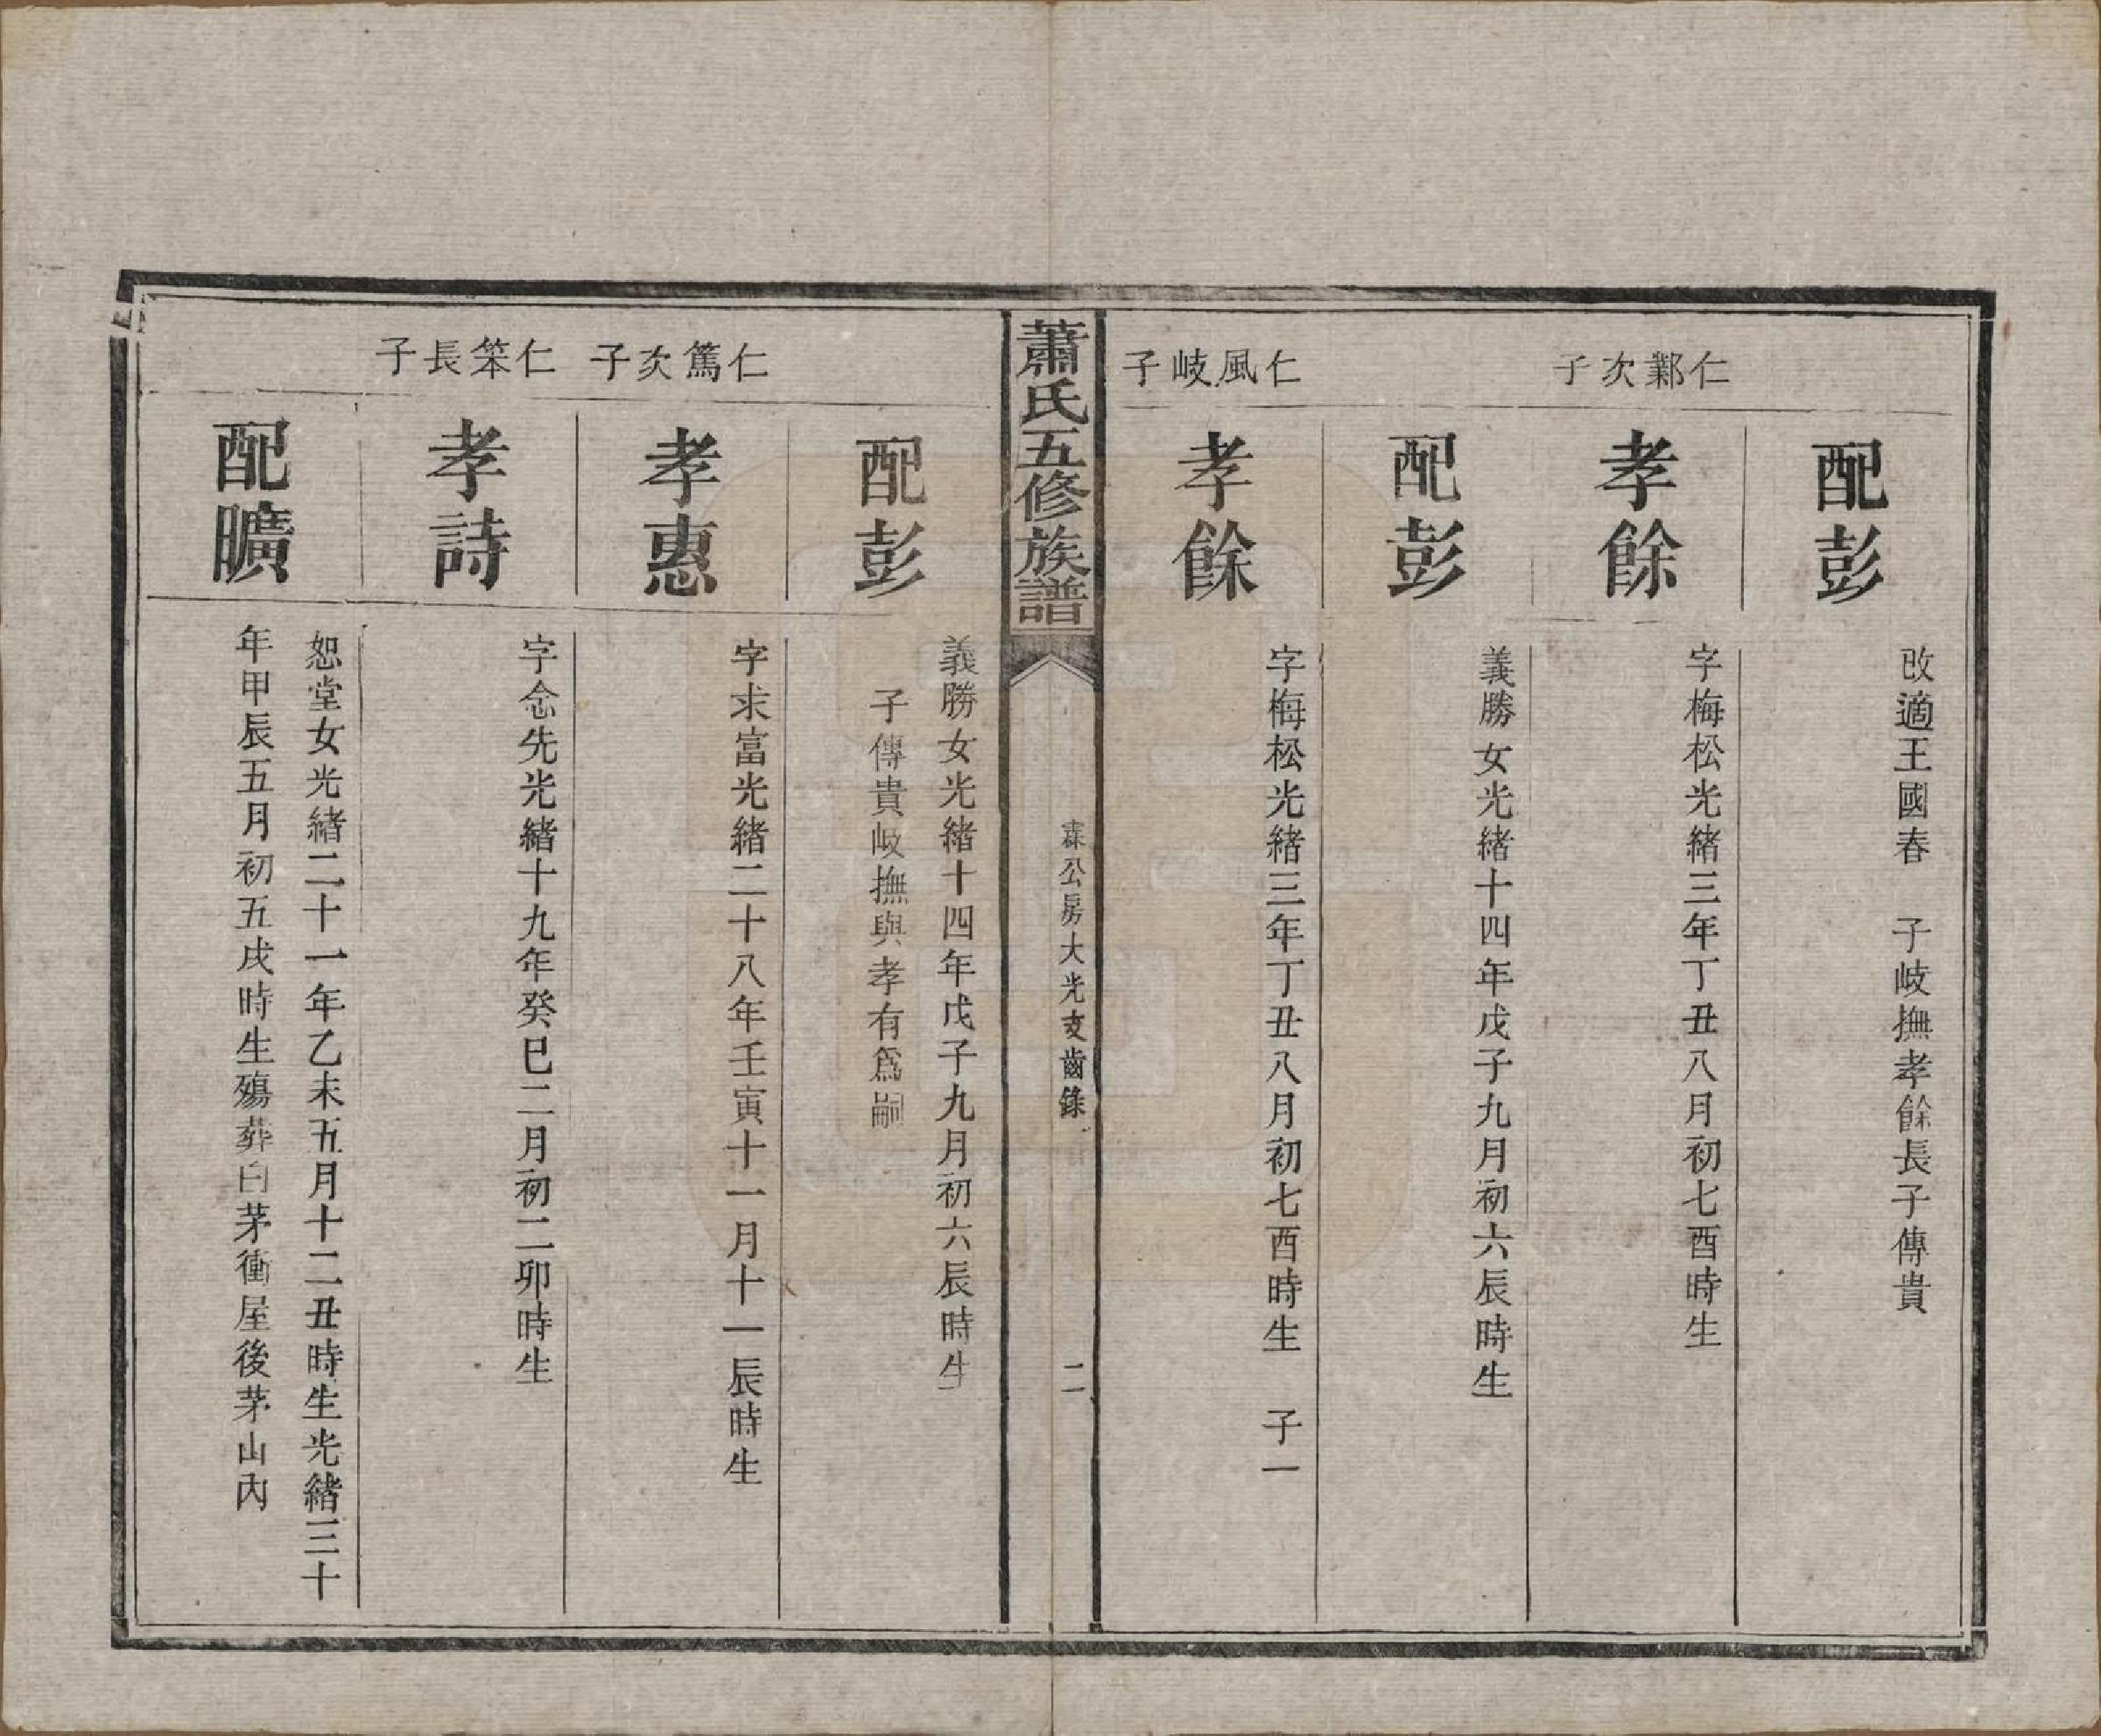 配彭
改適王國春　子岐撫孝餘長子傳貴
仁鄴次子
孝餘
字梅松光緒三年丁丑八月初七酉時生
配彭
義勝女光緒十四年戊子九月初六辰時生
仁風岐子
孝餘
字梅松光緒三年丁丑八月初七酉時生　子一
蕭氏五修族譜
霖公房大光支齒錄
二
配彭
義勝女光緒十四年戊子九月初六辰時生
子傳貴岐撫與孝有爲嗣
仁篤次子
孝惠
字求富光緒二十八年壬寅十一月十一辰時生
仁笨長子
孝詩
字念先光緒十九年癸巳二月初二卯時生
配曠
恕堂女光緒二十一年乙未五月十二丑時生光緒三十
年甲辰五月初五戌時生殤葬白茅衝屋後茅山內